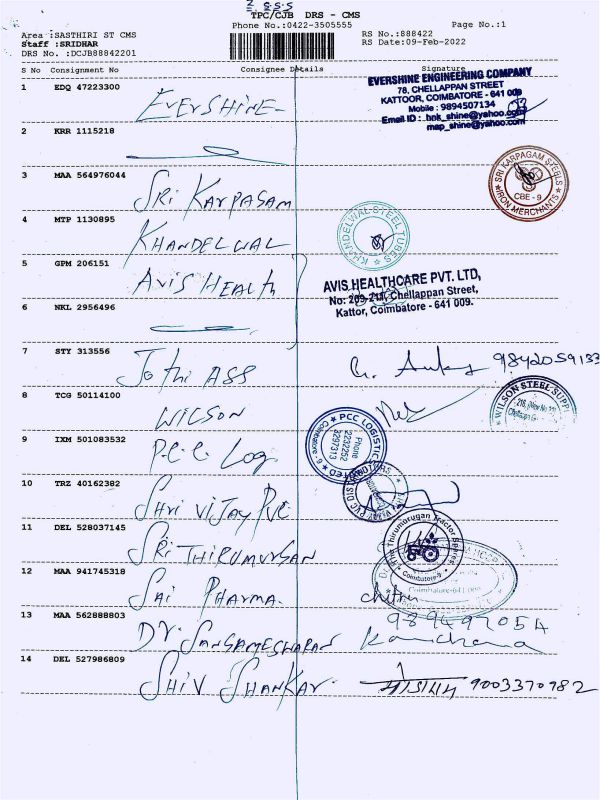 TPC/CJB DRS - CMS
Phone No.:0422-3505555 Page No.:1
Area :SASTHIRI ST CMS RS No.:888422
Staff :SRIDHAR RS Date:09-Feb-2022
DRS No. :DCJB88842201
S No Consignment No Consignee Details Signature
1 EDQ 47223300 EVERSHINE
EVERSHINE ENGINEERING COMPANY
78, CHELLAPPAN STREET
KATTOOR, COIMBATORE - 641 009
Mobile : 9894507134
Email ID : hnk_shine@yahoo.com
map_shine@yahoo.com
2 KRR 1115218
3 MAA 564976044 SRI KARPAGAM
SRI KARPAGAM STEELS
CBE - 9
IRON MERCHANTS
4 MTP 1130895 KHANDELWAL
KHANDELWAL STEEL TUBES
5 GPM 206151 AVIS HEALTH
AVIS HEALTHCARE PVT. LTD,
No: 209-211, Chellappan Street,
Kattor, Coimbatore - 641 009.
6 NKL 2956496
7 STY 313556 Jothi ASS 9842059133
8 TCG 50114100 WILSON
WILSON STEEL SUPPL
9 IXM 501083532 P.C.C. Log
PCC LOGISTIC
Phone
2232252
3297313
10 TRZ 40162382 SHRI VIJAY PVC
11 DEL 528037145 SRI THIRUMURGAN
Thirumurugan Tractor Spares
Coimbatore-9
12 MAA 941745318 SAI PHARMA chitra
13 MAA 562888803 DR. SANGAMESWARAN 989497054
Kanchana
14 DEL 527986809 SHIV SHANKAR 9003370982